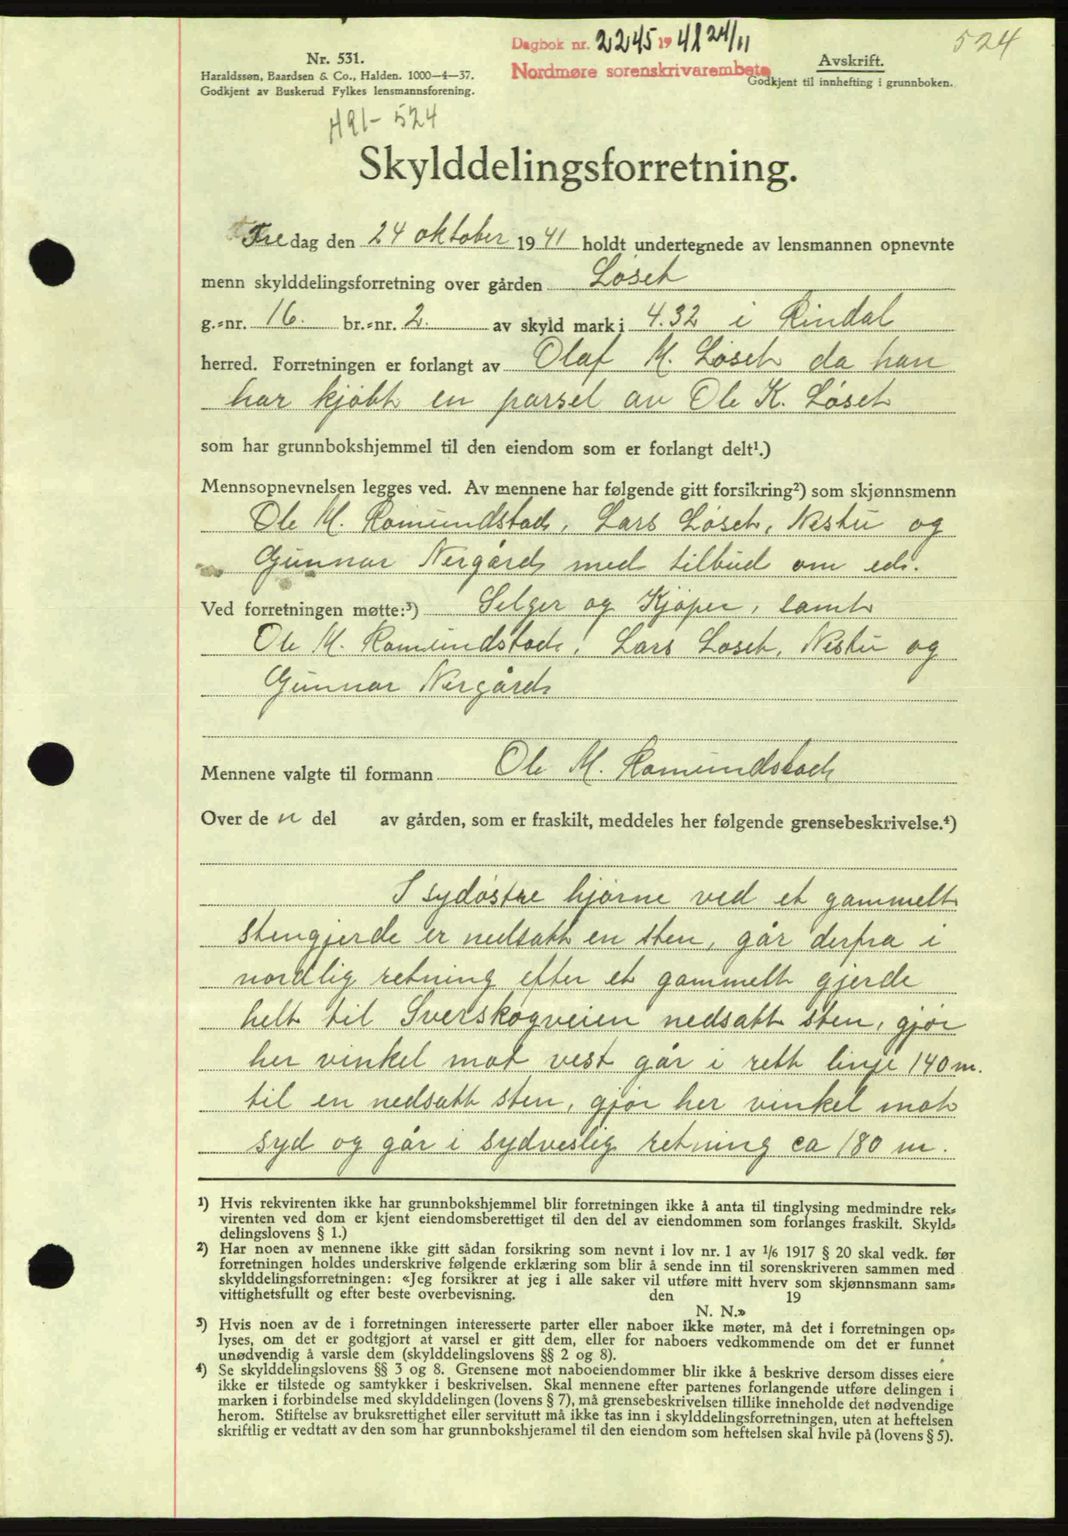 Dagbok nr. 2245 1941 24/11
524
Nordmøre sorenskrivarembete
Nr. 531.
Haraldssøn, Baardsen & Co., Halden. 1000—4—37.
Godkjent av Buskerud Fylkes lensmannsforening.
Avskrift.
Godkjent til innhefting i grunnboken.
A91-524
Skylddelingsforretning.
Fredag den 24 oktober 1941 holdt undertegnede av lensmannen opnevnte
menn skylddelingsforretning over gården Løset
g.-nr. 16. br.-nr. 2. av skyld mark i 4.32 i Rindal
herred. Forretningen er forlangt av Olaf M. Løset da han
har kjøbt en parsel av Ole K. Løset
som har grunnbokshjemmel til den eiendom som er forlangt delt¹.)
Mennsopnevnelsen legges ved. Av mennene har følgende gitt forsikring²) som skjønnsmenn
Ole M. Romundstad, Lars Løset, Nestu og
Gunnar Nergård med tilbud om ed.
Ved forretningen møtte:³) Selger og Kjøper, samt
Ole M. Romundstad, Lars Løset, Nestu og
Gunnar Nergård
Mennene valgte til formann Ole M. Romundstad
Over de n del av gården, som er fraskilt, meddeles her følgende grensebeskrivelse.⁴)
I sydøstre hjørne ved et gammelt
stengjerde er nedsatt en sten, går derfra i
nordlig retning efter et gammelt gjerde
helt til Sverskogveien nedsatt sten, gjør
her vinkel mot vest går i rett linje 140 m.
til en nedsatt sten, gjør her vinkel mot
syd og går i sydvestlig retning ca 180 m.
¹) Hvis rekvirenten ikke har grunnbokshjemmel blir forretningen ikke å anta til tinglysing medmindre rek-
virenten ved dom er kjent eiendomsberettiget til den del av eiendommen som forlanges fraskilt. Skyld-
delingslovens § 1.)
²) Har noen av mennene ikke gitt sådan forsikring som nevnt i lov nr. 1 av 1/6 1917 § 20 skal vedk. før
forretningen holdes underskrive følgende erklæring som blir å sende inn til sorenskriveren sammen med
skylddelingsforretningen: «Jeg forsikrer at jeg i alle saker vil utføre mitt hverv som skjønnsmann sam-
vittighetsfullt og efter beste overbevisning. den 19
N. N.»
³) Hvis noen av de i forretningen interesserte parter eller naboer ikke møter, må det i forretningen op-
lyses, om det er godtgjort at varsel er gitt dem, eller for naboers vedkommende om det er funnet
unødvendig å varsle dem (skylddelingslovens §§ 2 og 8).
⁴) Se skylddelingslovens §§ 3 og 8. Grensene mot naboeiendommer blir ikke å beskrive dersom disses eiere
ikke er tilstede og samtykker i beskrivelsen. Skal mennene efter partenes forlangende utføre delingen i
marken i forbindelse med skylddelingen (lovens § 7), må grensebeskrivelsen tillike inneholde det nødvendige
herom. Stiftelse av bruksrettighet eller servitutt må ikke tas inn i skylddelingsforretningen, uten at heftelsen
skriftlig er vedtatt av den som har grunnbokshjemmel til den eiendom som heftelsen skal hvile på (lovens § 5).